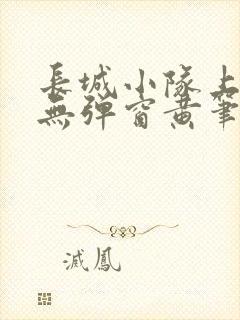 長城小隊上
無彈窗黃筆
滅鳳